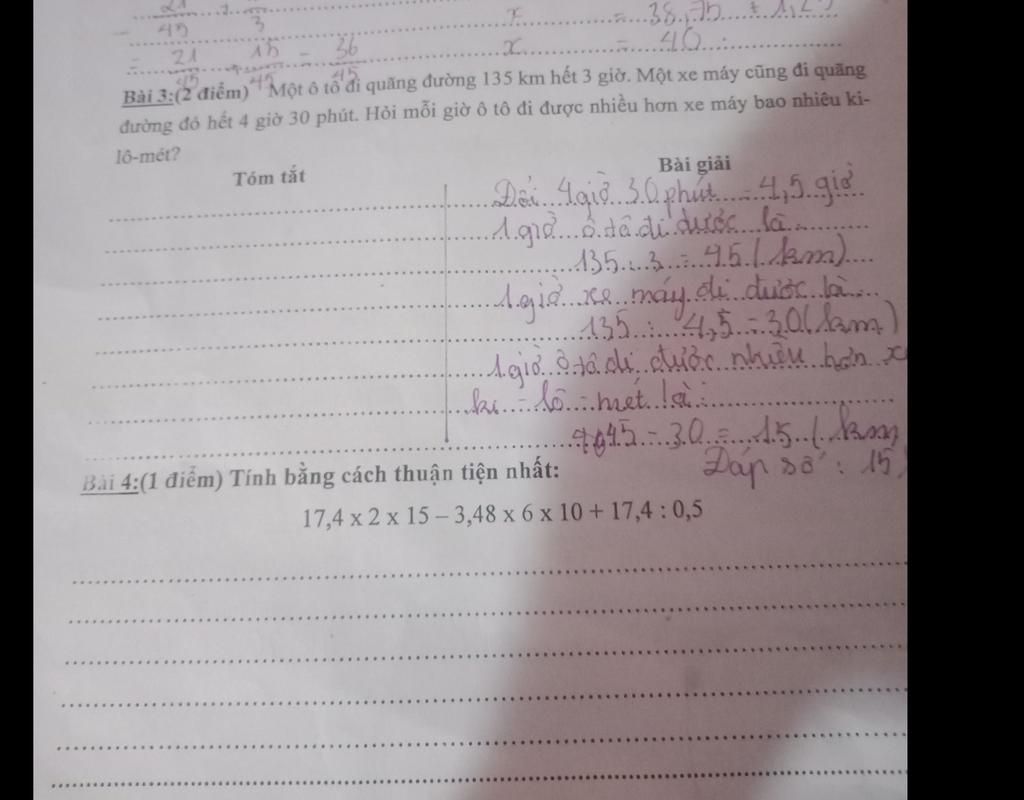 21/45 + 1/3 x = 38,75 + 1,25
= 21/45 + 15/45 = 36/45 x = 40
Bài 3:(2 điểm) Một ô tô đi quãng đường 135 km hết 3 giờ. Một xe máy cũng đi quãng
đường đó hết 4 giờ 30 phút. Hỏi mỗi giờ ô tô đi được nhiều hơn xe máy bao nhiêu ki-
lô-mét?
Tóm tắt Bài giải
Đổi 4 giờ 30 phút = 4,5 giờ
1 giờ ô tô đi được là
135 : 3 = 45 ( km)
1 giờ xe máy đi được là
135 : 4,5 = 30 (km)
1 giờ ô tô đi được nhiều hơn x
ki - lô - mét là :
45 - 30 = 15 ( km
Đáp số : 15
Bài 4:(1 điểm) Tính bằng cách thuận tiện nhất:
17,4 x 2 x 15 – 3,48 x 6 x 10 + 17,4 : 0,5